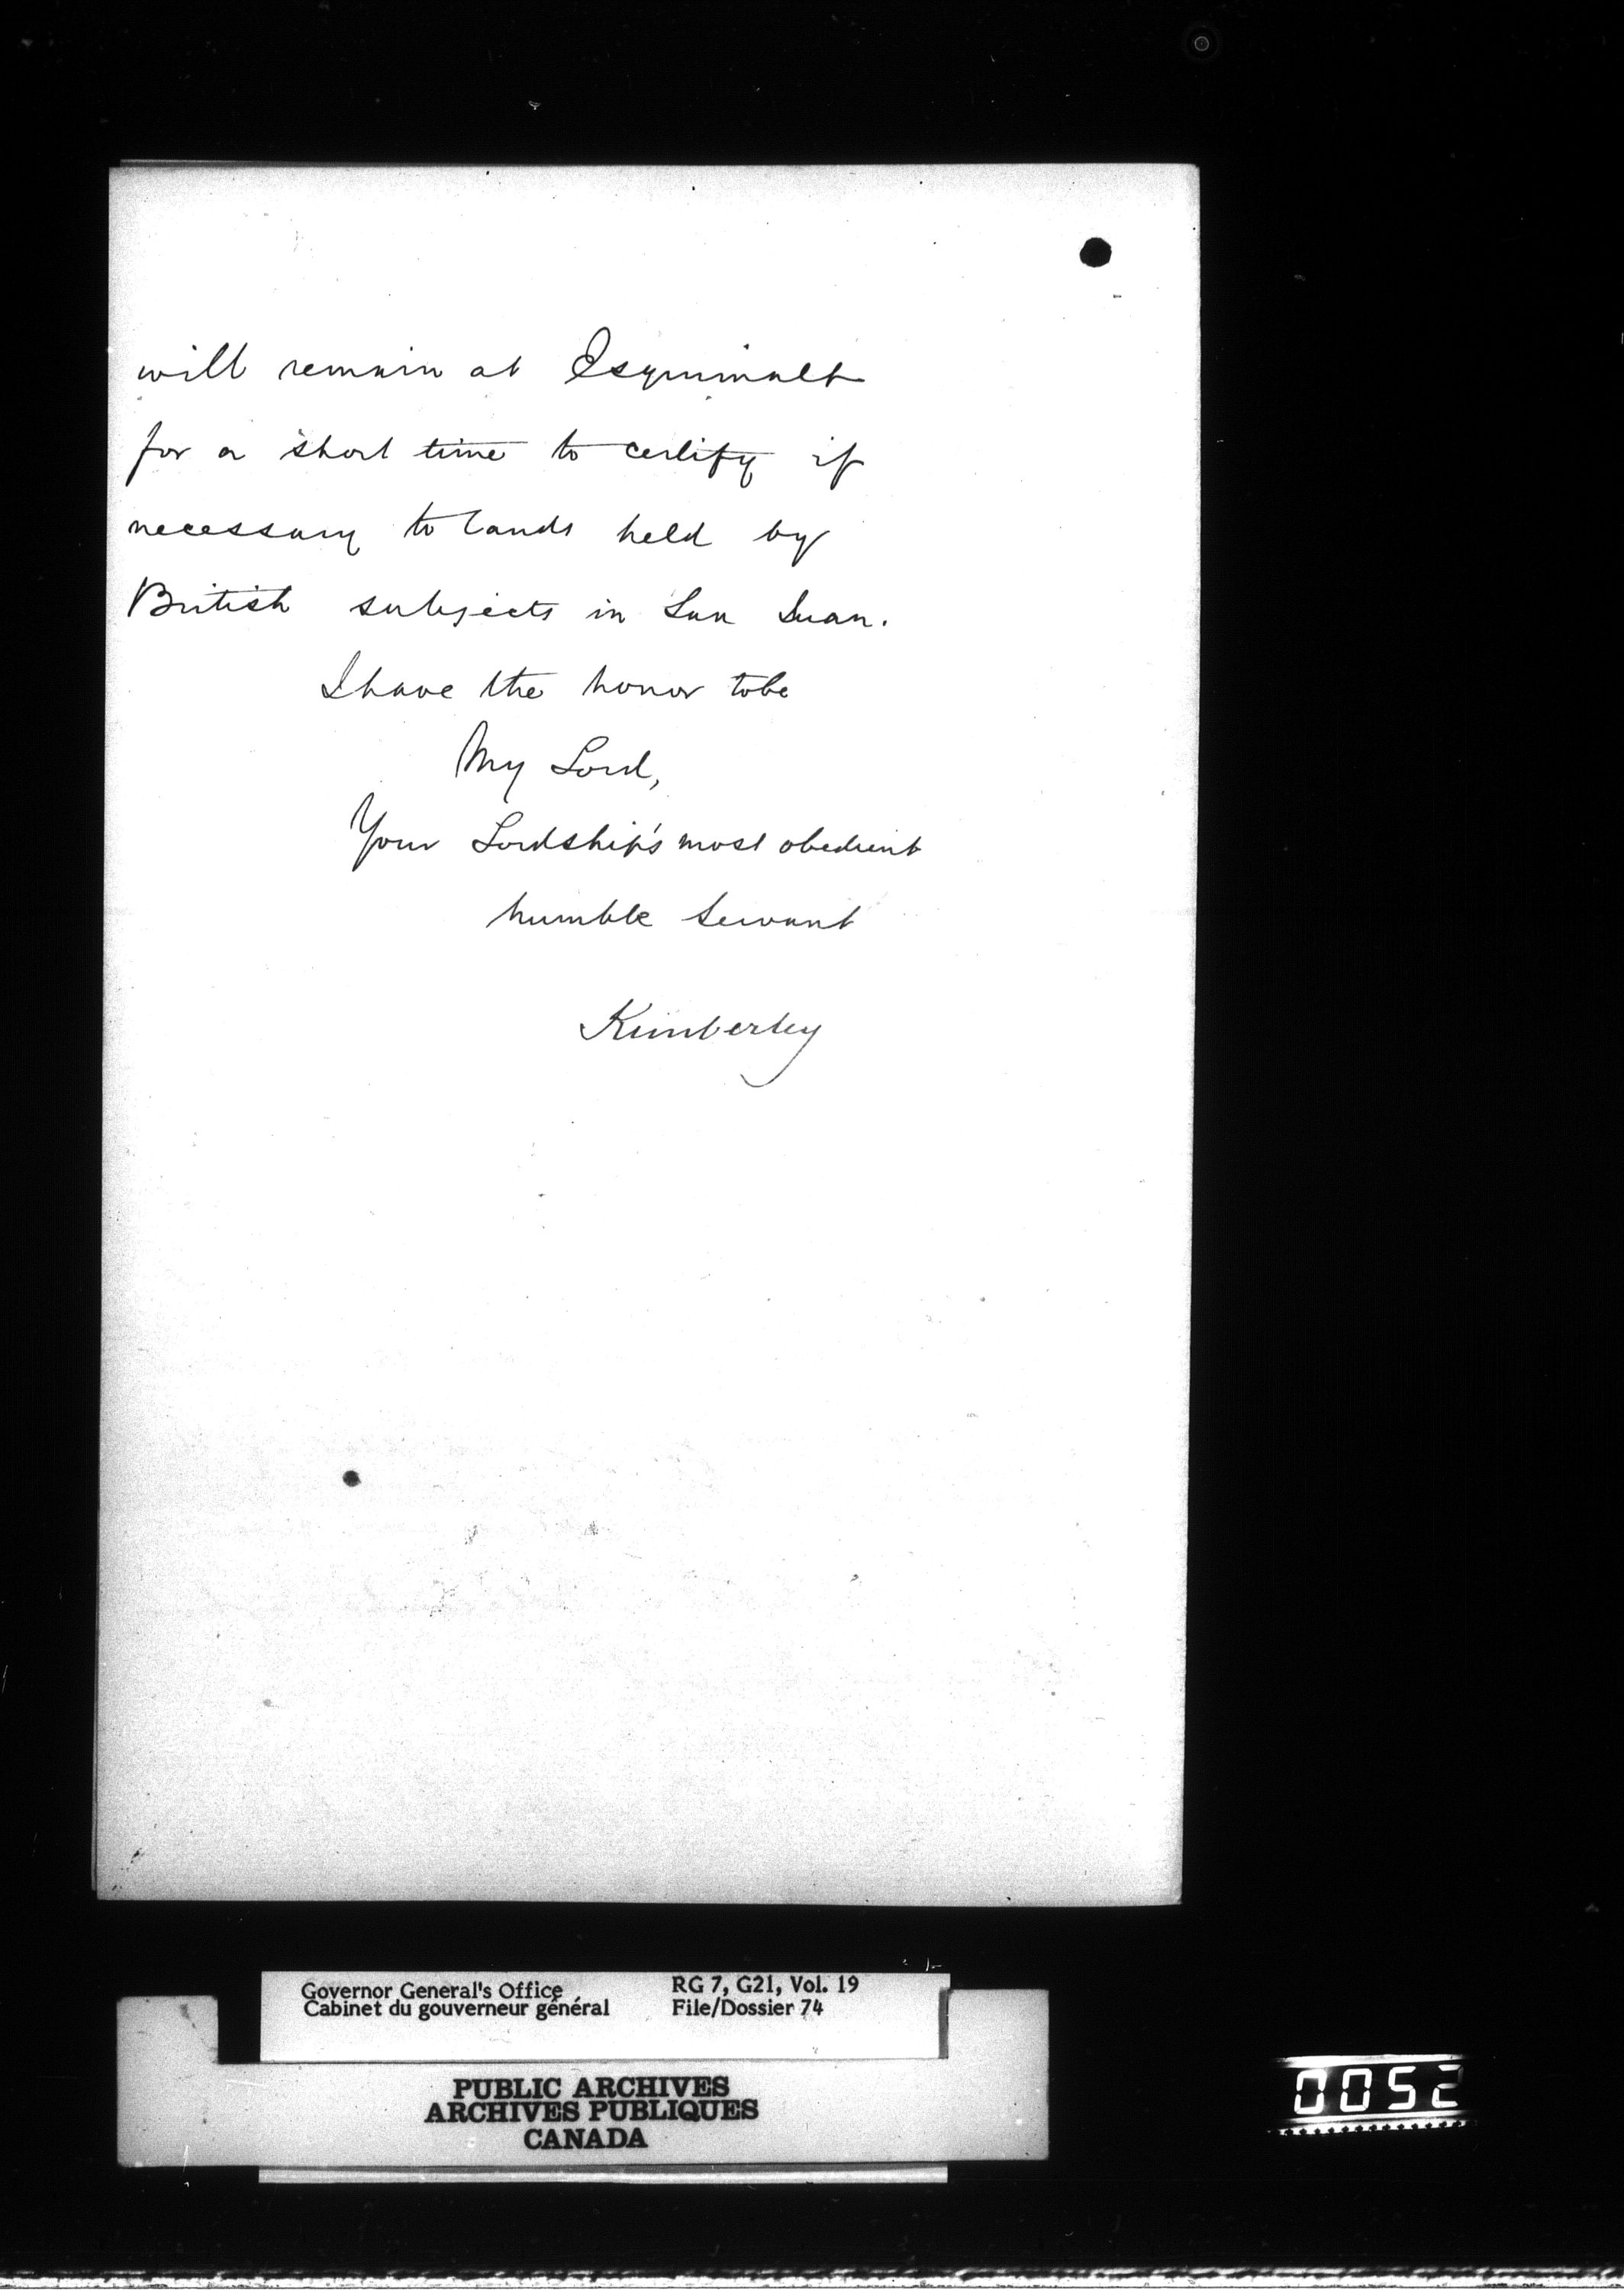 will remain at Esquimalt
for a short time to certify if
necessary to lands held by
British subjects in San Juan.
I have the honor to be
My Lord,
Your Lordship's most obedient
humble servant
Kimberley
Governor General's Office
Cabinet du gouverneur général
RG 7, G21, Vol. 19
File/Dossier 74
PUBLIC ARCHIVES
ARCHIVES PUBLIQUES
CANADA
0052